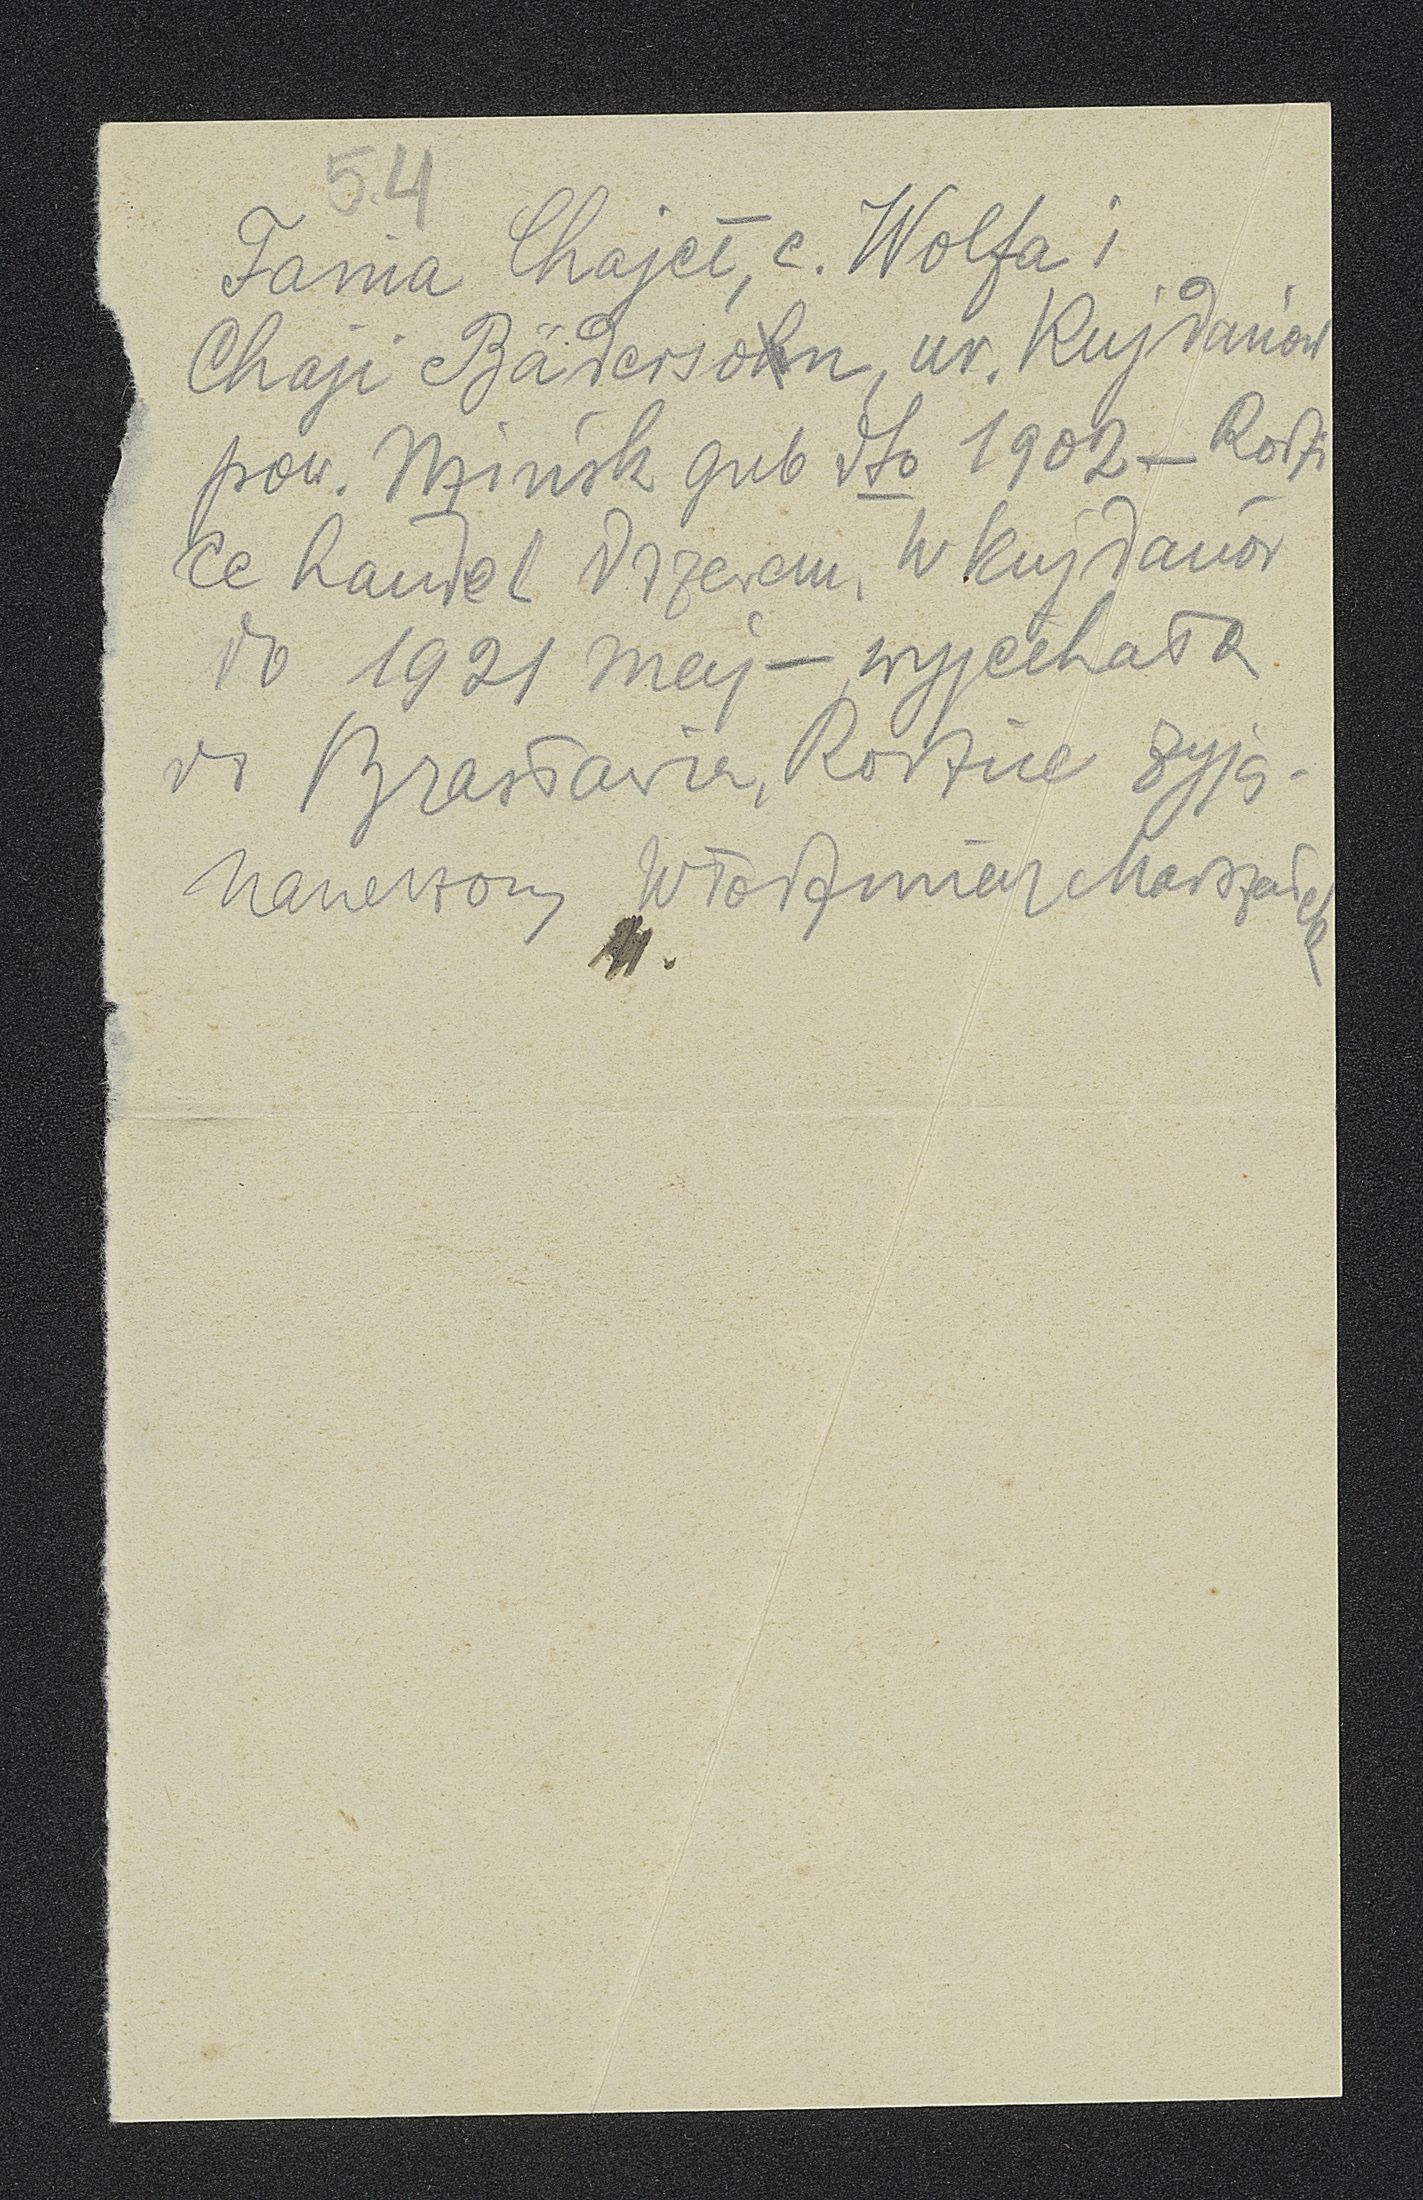 54
Fania Chajet, c. Wolfa i
Chaji Bädersohn, ur. Kujdanów
pow. Mińsk gub dto 1902 – Rodzi
ce handel drzewem, W Kujdanów
do 1921 maj – wyjechała
do Brasławia, Rodzice żyją.
Narzeczony Włodzimierz Marszałek